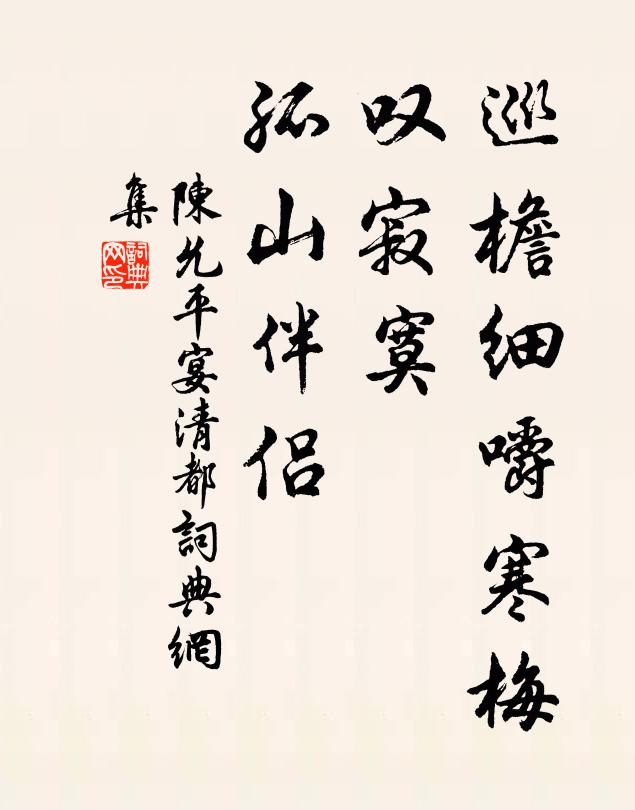 巡檐细嚼寒梅
叹寂寞
孤山伴侣
陳允平宴清都詞典網
集
詞典网印